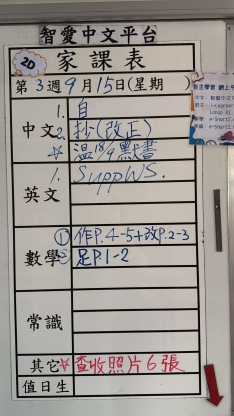 智愛中文平台
2D
家課表
第3週9月15日(星期 )
中文
1. 自
2. 抄(改正)
☆ 溫18/9默書
英文
1. Supp WS.
數學
① 作P.4-5+改P.2-3
② 足P.1-2
常識
其它
☆ 查收照片6張
值日生
自主學習 網上平